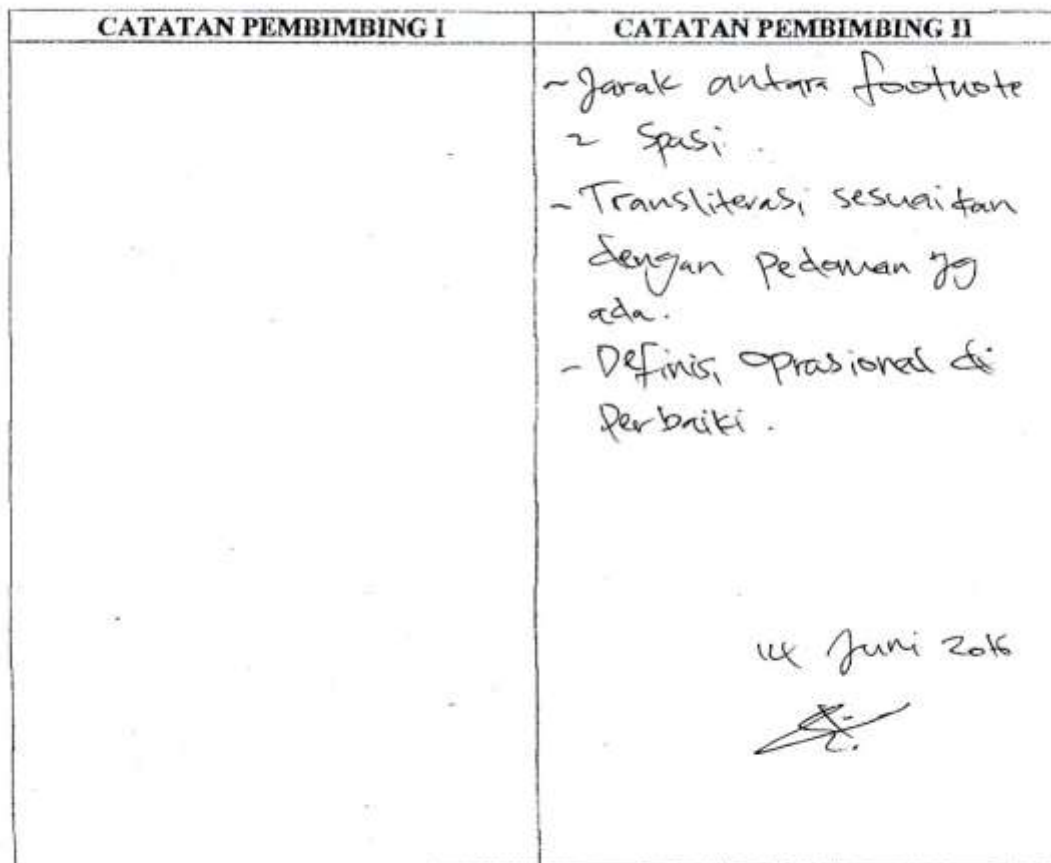 CATATAN PEMBIMBING I
CATATAN PEMBIMBING II
- Jarak antara footnote
2 Spasi.
- Transliterasi sesuaikan
dengan Pedoman yg
ada.
- Definisi Oprasional di
Perbaiki.
14 Juni 2016